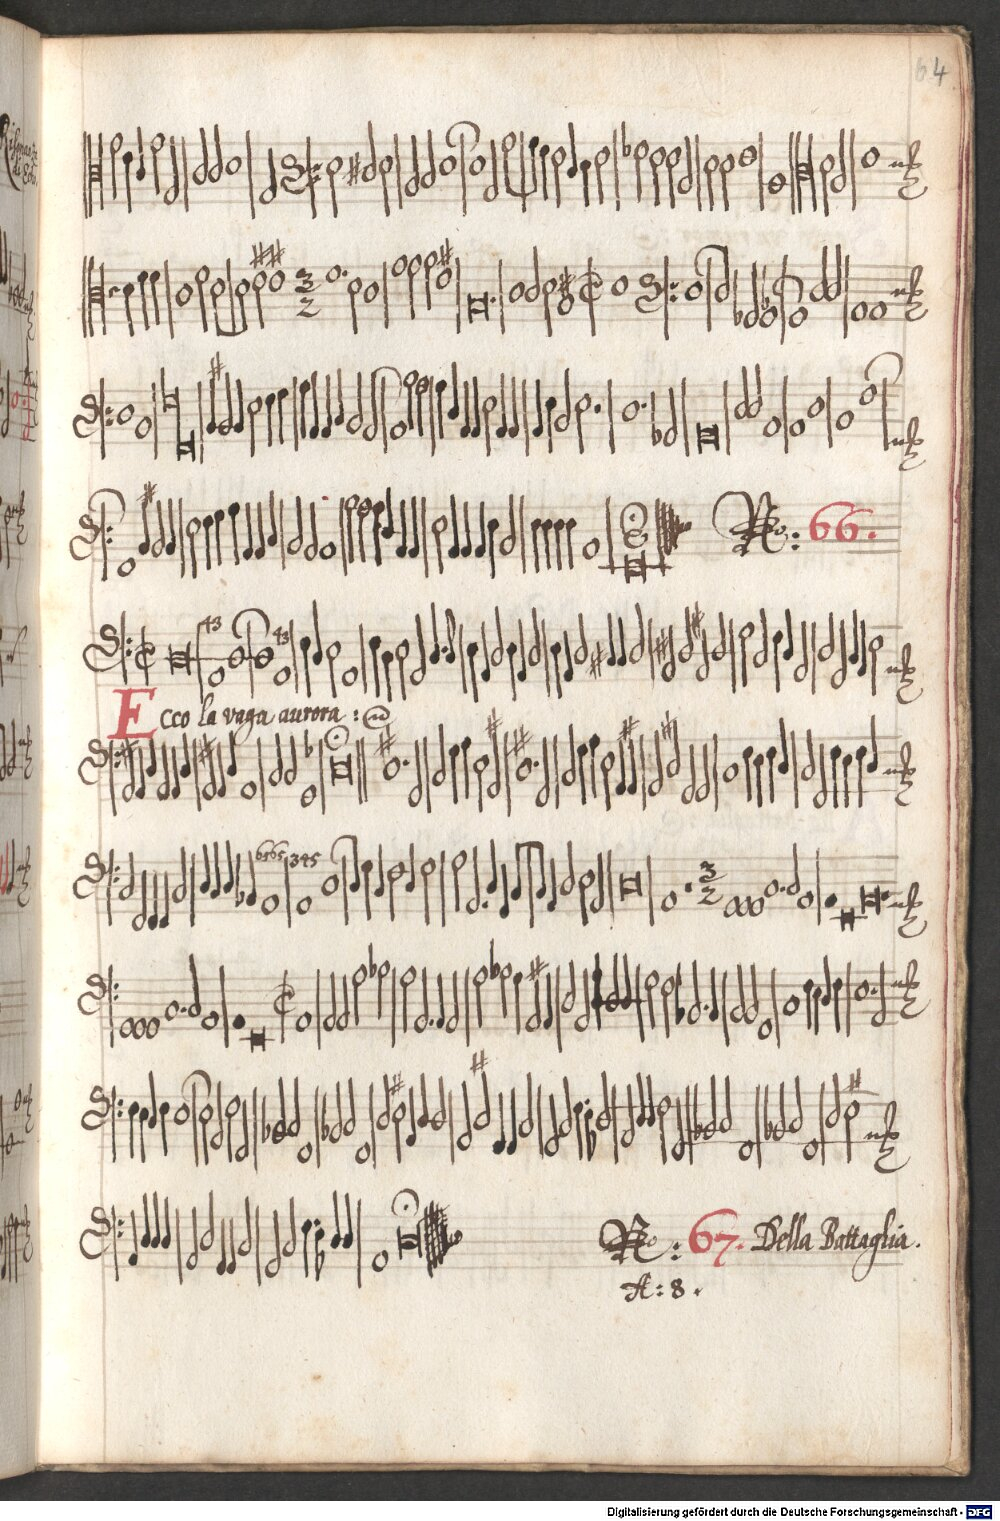 64
No: 66.
43 43
Ecco la vaga aurora :
6565 345
3
2
No: 67. Della Battaglia.
A: 8.
Digitalisierung gefördert durch die Deutsche Forschungsgemeinschaft - DFG